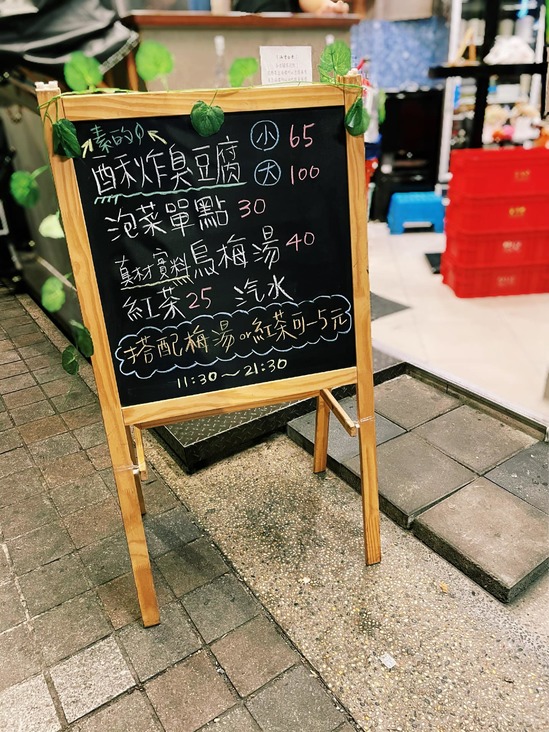 素的
酥炸臭豆腐 小 65
大 100
泡菜單點 30
真材實料烏梅湯 40
紅茶 25 汽水
搭配梅湯or紅茶可-5元
11:30～21:30